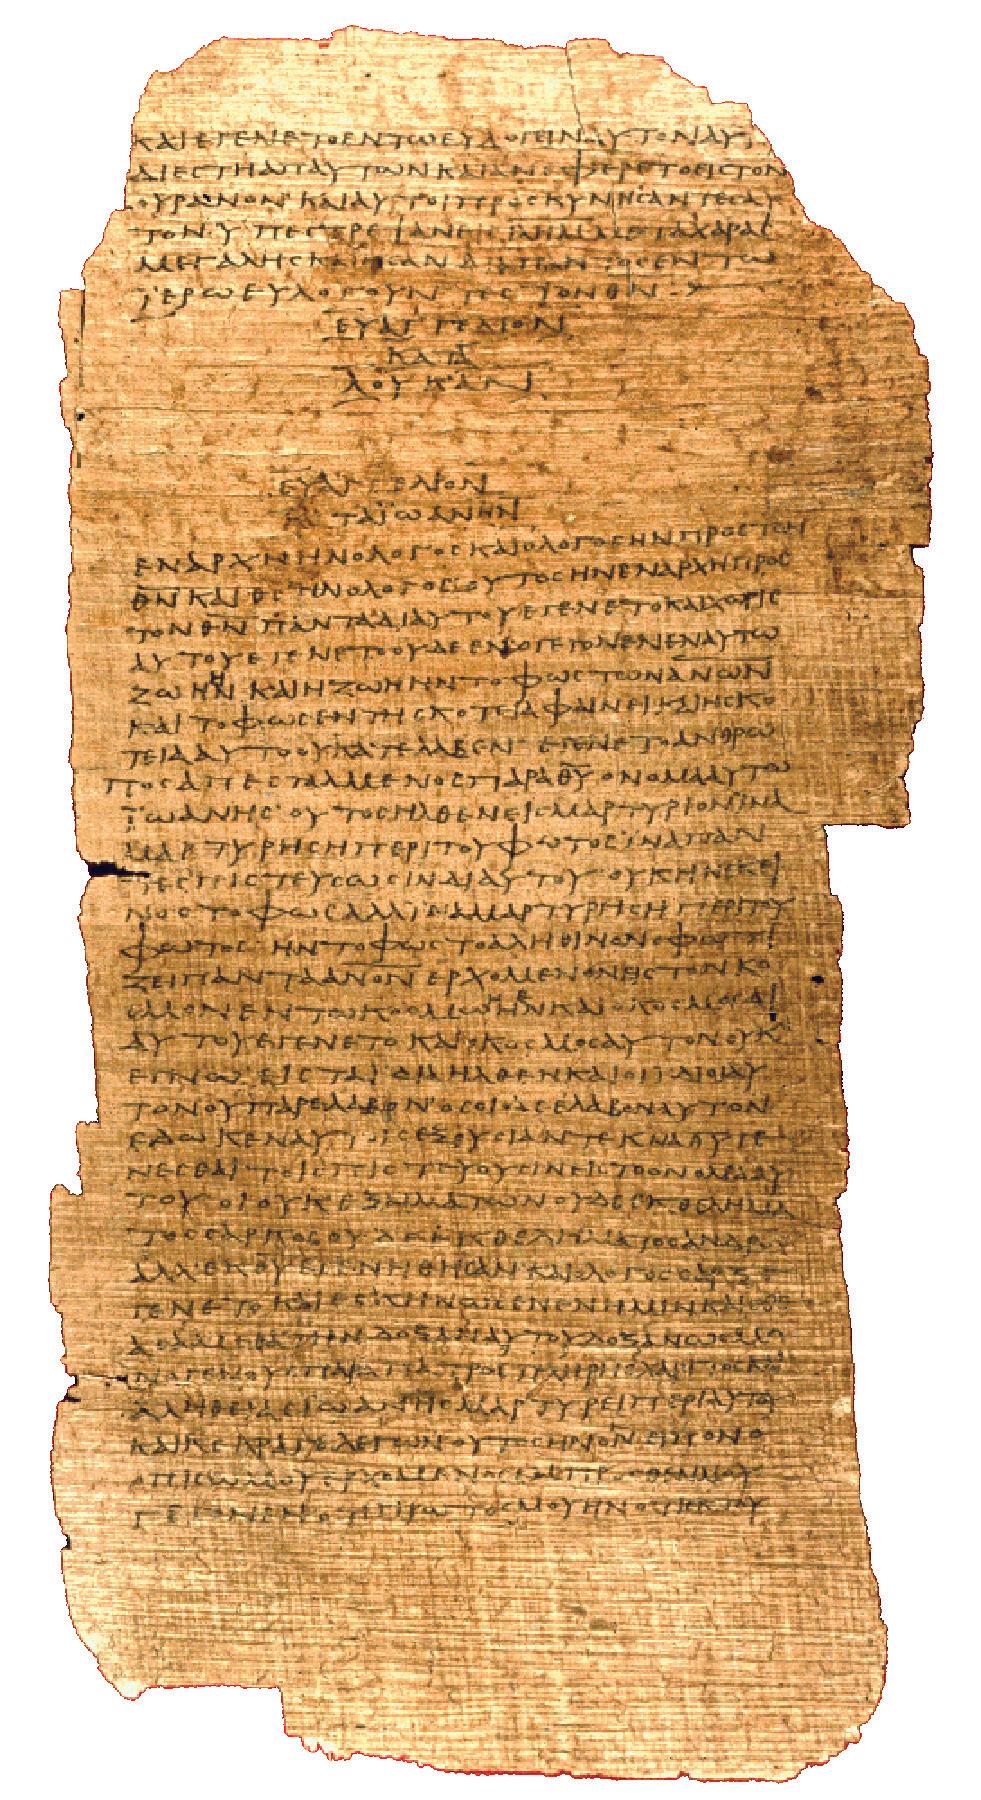 ΚΑΙΕΓΕΝΕΤΟΕΝΤΩΕΥΛΟΓΕΙΝΑΥΤΟΝΑΥΤ
ΔΙΕϹΤΗΑΠΑΥΤΩΝΚΑΙΑΝΕΦΕΡΕΤΟΕΙϹΤΟΝ
ΟΥΡΑΝΟΝ ΚΑΙΑΥΤΟΙΠΡΟϹΚΥΝΗϹΑΝΤΕϹΑΥ
ΤΟΝ ΥΠΕϹΤΡΕΨΑΝΕΙϹΙΛΗΜΜΕΤΑΧΑΡΑϹ
ΜΕΓΑΛΗϹΚΑΙΗϹΑΝΔΙΑΠΑΝΤΟϹΕΝΤΩ
ΪΕΡΩΕΥΛΟΓΟΥΝΤΕϹΤΟΝΘ̅Ν̅
ΕΥΑΓΓΕΛΙΟΝ
ΚΑΤΑ
ΛΟΥΚΑΝ
ΕΥΑΓΓΕΛΙΟΝ
ΚΑΤΑΪΩΑΝΗΝ
ΕΝΑΡΧΗΗΝΟΛΟΓΟϹΚΑΙΟΛΟΓΟϹΗΝΠΡΟϹΤΟΝ
Θ̅Ν̅ΚΑΙΘ̅Ϲ̅ΗΝΟΛΟΓΟϹΟΥΤΟϹΗΝΕΝΑΡΧΗΠΡΟϹ
ΤΟΝΘ̅Ν̅ΠΑΝΤΑΔΙΑΥΤΟΥΕΓΕΝΕΤΟΚΑΙΧΩΡΙϹ
ΑΥΤΟΥΕΓΕΝΕΤΟΟΥΔΕΕΝ ΟΓΕΓΟΝΕΝΕΝΑΥΤΩ
ΖΩΗΗΝΚΑΙΗΖΩΗΗΝΤΟΦΩϹΤΩΝΑ̅Ν̅Ω̅Ν̅
ΚΑΙΤΟΦΩϹΕΝΤΗϹΚΟΤΕΙΑΦΑΙΝΕΙΚΑΙΗϹΚΟ
ΤΕΙΑΑΥΤΟΟΥΚΑΤΕΛΑΒΕΝ ΕΓΕΝΕΤΟΑΝΘΡΩ
ΠΟϹΑΠΕϹΤΑΛΜΕΝΟϹΠΑΡΑΘ̅Υ̅ΟΝΟΜΑΑΥΤΩ
ΪΩΑΝΗϹ ΟΥΤΟϹΗΛΘΕΝΕΙϹΜΑΡΤΥΡΙΟΝΪΝΑ
ΜΑΡΤΥΡΗϹΗΠΕΡΙΤΟΥΦΩΤΟϹΪΝΑΠΑΝ
ΤΕϹΠΙϹΤΕΥϹΩϹΙΝΔΙΑΥΤΟΥ ΟΥΚΗΝΕΚΕΙ
ΝΟϹΤΟΦΩϹΑΛΛΙΝΑΜΑΡΤΥΡΗϹΗΠΕΡΙΤΟΥ
ΦΩΤΟϹ ΗΝΤΟΦΩϹΤΟΑΛΗΘΙΝΟΝΟΦΩΤΙ
ΖΕΙΠΑΝΤΑΑ̅Ν̅Ο̅Ν̅ΕΡΧΟΜΕΝΟΝΕΙϹΤΟΝΚΟ
ϹΜΟΝΕΝΤΩΚΟϹΜΩΗΝΚΑΙΟΚΟϹΜΟϹΔΙ
ΑΥΤΟΥΕΓΕΝΕΤΟΚΑΙΟΚΟϹΜΟϹΑΥΤΟΝΟΥΚ
ΕΓΝΩ ΕΙϹΤΑΪΔΙΑΗΛΘΕΝΚΑΙΟΙΪΔΙΟΙΑΥ
ΤΟΝΟΥΠΑΡΕΛΑΒΟΝ ΟϹΟΙΔΕΕΛΑΒΟΝΑΥΤΟΝ
ΕΔΩΚΕΝΑΥΤΟΙϹΕΞΟΥϹΙΑΝΤΕΚΝΑΘ̅Υ̅ΓΕ
ΝΕϹΘΑΙΤΟΙϹΠΙϹΤΕΥΟΥϹΙΝΕΙϹΤΟΟΝΟΜΑΑΥ
ΤΟΥ ΟΙΟΥΚΕΞΑΙΜΑΤΩΝΟΥΔΕΕΚΘΕΛΗΜΑ
ΤΟϹϹΑΡΚΟϹΟΥΔΕΕΚΘΕΛΗΜΑΤΟϹΑΝΔΡΟϹ
ΑΛΛΕΚΘ̅Υ̅ΕΓΕΝΗΘΗϹΑΝΚΑΙΟΛΟΓΟϹϹΑΡΞΕ
ΓΕΝΕΤΟΚΑΙΕϹΚΗΝΩϹΕΝΕΝΗΜΙΝΚΑΙΕΘΕ
ΑϹΑΜΕΘΑΤΗΝΔΟΞΑΝΑΥΤΟΥΔΟΞΑΝΩϹΜΟ
ΝΟΓΕΝΟΥϹΠΑΡΑΠΑΤΡΟϹΠΛΗΡΗϹΧΑΡΙΤΟϹΚΑΙ
ΑΛΗΘΕΙΑϹΪΩΑΝΗϹΜΑΡΤΥΡΕΙΠΕΡΙΑΥΤΟΥ
ΚΑΙΚΕΚΡΑΓΕΛΕΓΩΝΟΥΤΟϹΗΝΟΝΕΙΠΟΝΟ
ΟΠΙϹΩΜΟΥΕΡΧΟΜΕΝΟϹΕΜΠΡΟϹΘΕΝΜΟΥ
ΓΕΓΟΝΕΝΟΤΙΠΡΩΤΟϹΜΟΥΗΝΟΤΙΕΚΤΟΥ